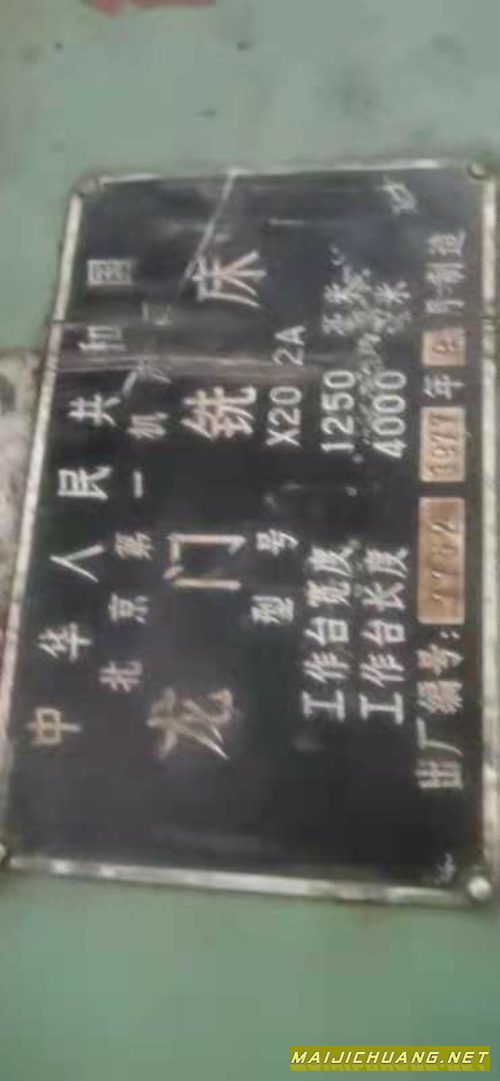 中华人民共和国
北京第一机床厂
龙门铣床
型号 X2012A
工作台宽度 1250 毫米
工作台长度 4000 毫米
出厂编号: 1977年9月制造
MAIJICHUANG.NET